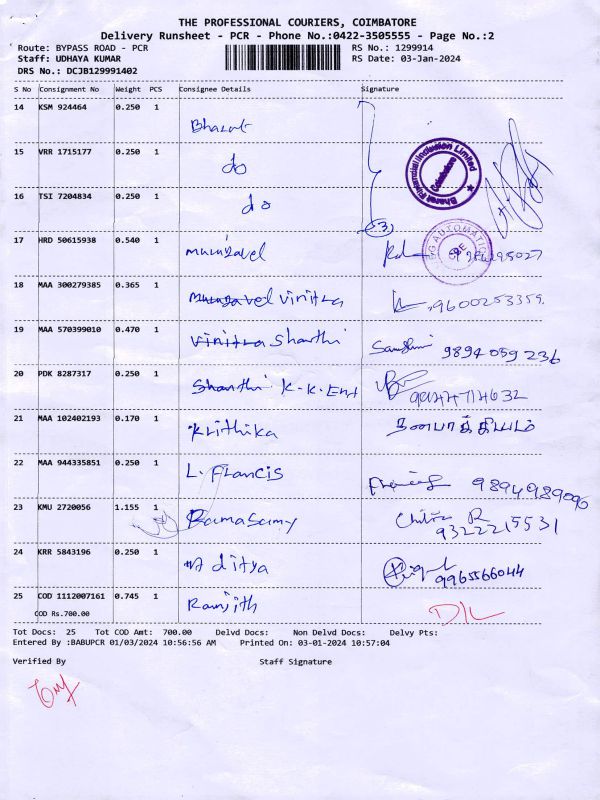 THE PROFESSIONAL COURIERS, COIMBATORE
Delivery Runsheet - PCR - Phone No.:0422-3505555 - Page No.:2
Route: BYPASS ROAD - PCR RS No.: 1299914
Staff: UDHAYA KUMAR RS Date: 03-Jan-2024
DRS No.: DCJB129991402
S No Consignment No Weight PCS Consignee Details Signature
14 KSM 924464 0.250 1 Bharat
15 VRR 1715177 0.250 1 do
Bharat Financial Inclusion Limited
Coimbatore
16 TSI 7204834 0.250 1 do
(3)
17 HRD 50615938 0.540 1 murugavel
18 MAA 300279385 0.365 1 murugavel Vinitra 9600253359
19 MAA 570399010 0.470 1 Vinitra Shanthi 9894059236
20 PDK 8287317 0.250 1 Shanthi K.K. Ent
21 MAA 102402193 0.170 1 Krithika
22 MAA 944335851 0.250 1 L. Francis 9894989090
23 KMU 2720056 1.155 1 Ramasamy Chitra R
9322215531
24 KRR 5843196 0.250 1 Aditya 9965566044
25 COD 1112007161 0.745 1 Ranjith D/L
COD Rs.700.00
Tot Docs: 25 Tot COD Amt: 700.00 Delvd Docs: Non Delvd Docs: Delvy Pts:
Entered By :BABUPCR 01/03/2024 10:56:56 AM Printed On: 03-01-2024 10:57:04
Verified By Staff Signature